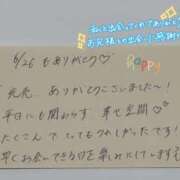 私と出会ってくれてありがとう
お兄様との出会いに感謝
6/26 もありがとう♡
Happy
完売 ありがとうございました!
平日にも関わらず 幸せ空間♡
たくさん で とってもうれしかったです!
早くお会いできる日を楽しみにしています